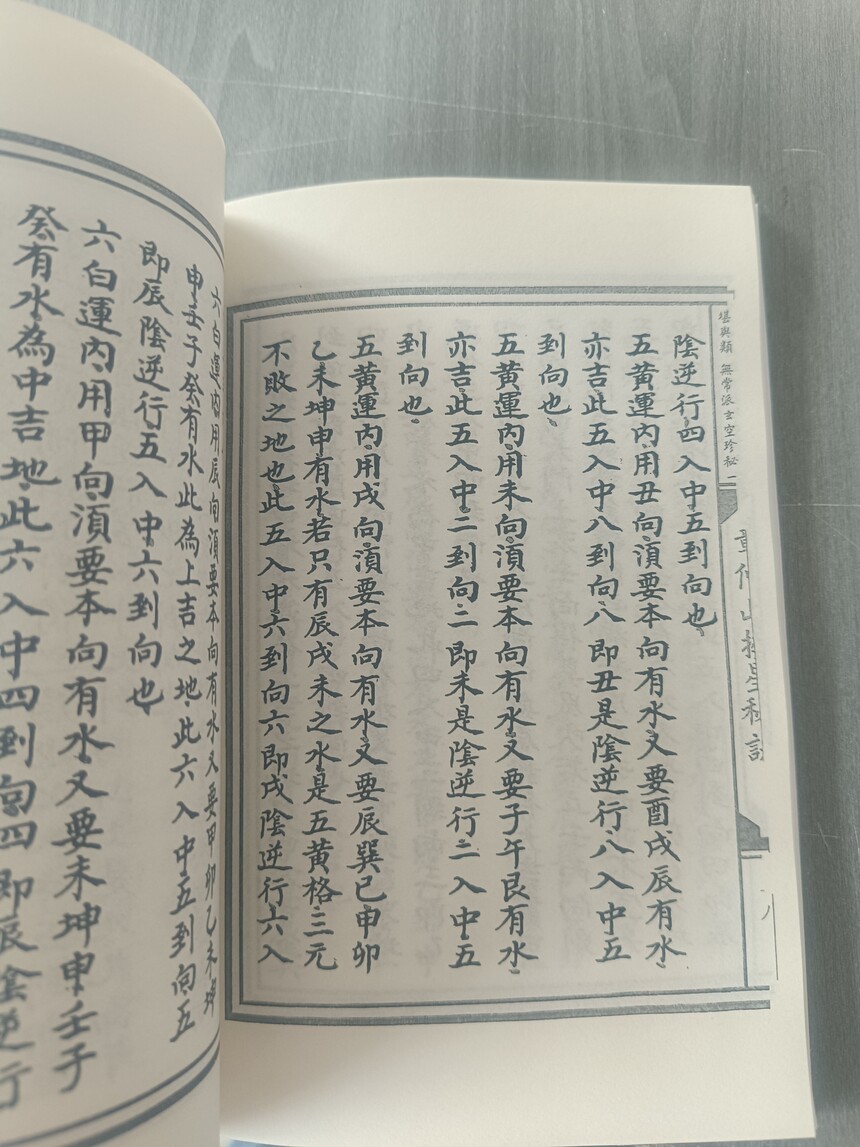 堪輿類 無常派玄空珍秘 一
章仲山挨星秘訣
陰逆行四入中五到向也
五黃運內用丑向湏要本向有水又要酉戌辰有水
亦吉此五入中八到向八即丑是陰逆行八入中五
到向也
五黃運內用未向湏要本向有水又要子午艮有水
亦吉此五入中二到向二即未是陰逆行二入中五
到向也
五黃運內用戌向湏要本向有水又要辰巽巳申卯
乙未坤申有水若只有辰戌未之水是五黃格三元
不敗之地也此五入中六到向六即戌陰逆行六入
六白運內用辰向湏要本向有水又要甲卯乙未坤
申壬子癸有水此為上吉之地此六入中五到向五
即辰陰逆行五入中六到向也
六白運內用甲向湏要本向有水又要未坤申壬子
癸有水為中吉地此六入中四到向四即辰陰逆行